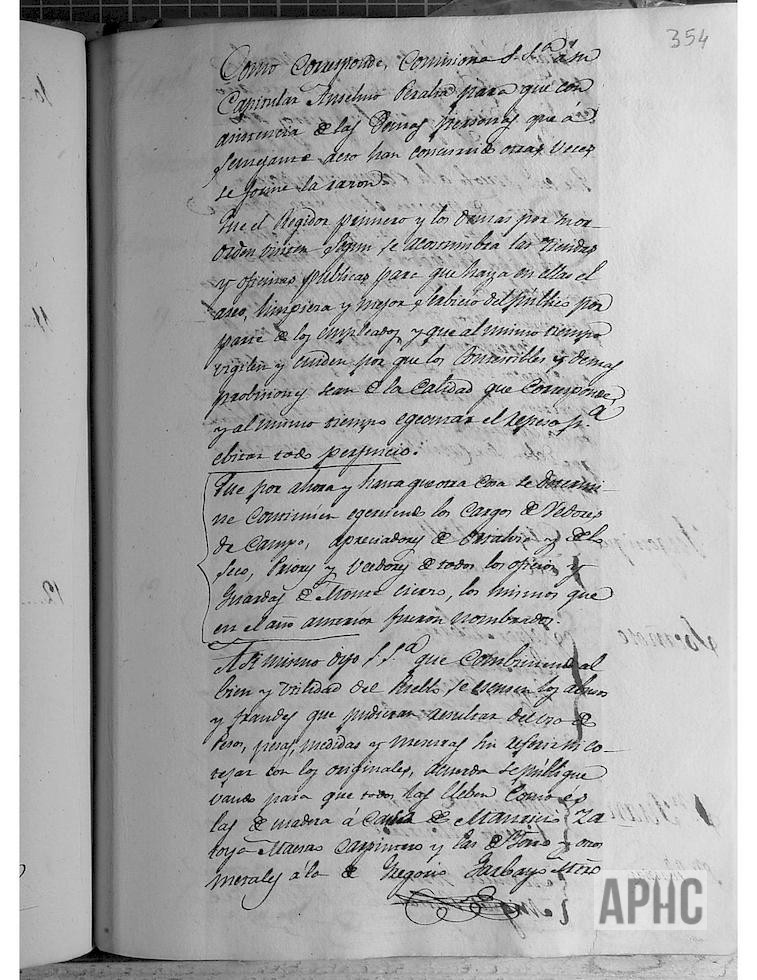 354
Como Corresponde, Comisiona S. Sª. a su
Capitular Anselmo Peralta para que con
asistencia de las Demas personas que á
semejante acto han concurrido otras veces
se forme la razon
Que el Regidor primero y los demas por su or-
orden visiten segun se acostumbra las tiendas
y oficinas publicas para que haya en ellas el
aseo, limpieza y mejor servicio del publico por
parte de los empleados, y que al mismo tiempo
vigilen y cuiden por que los Comestibles y demas
probisiones sean de la Calidad que Corresponde,
y al mismo tiempo egecutar el repeso pª.
ebitar todo perjuicio.
Que por ahora y hasta que otra cosa se determi-
ne Continuen egerciendo los Cargos de Vedores
de Campo, apreciadores de Regadio y de lo
Seco, Priores y Veedores de todos los oficios y
Guardas de Monte Cierzo, los mismos que
en el año anterior fueron nombrados.
Asi mismo dijo S. Sª. que Combiniendo al
bien y utilidad del Pueblo se eviten los abusos
y fraudes que pudieran resultar del uso de
Peso, pesas, medidas y mensuras sin referir ni co-
tejar con los originales, acuerda se publique
vando para que todos las lleben Como es
las de madera á Casa de Mauricio Za
loya Maestro Carpintero y las de Hierro y otros
metales á la de Gregorio Garbayo Mtro
APHC